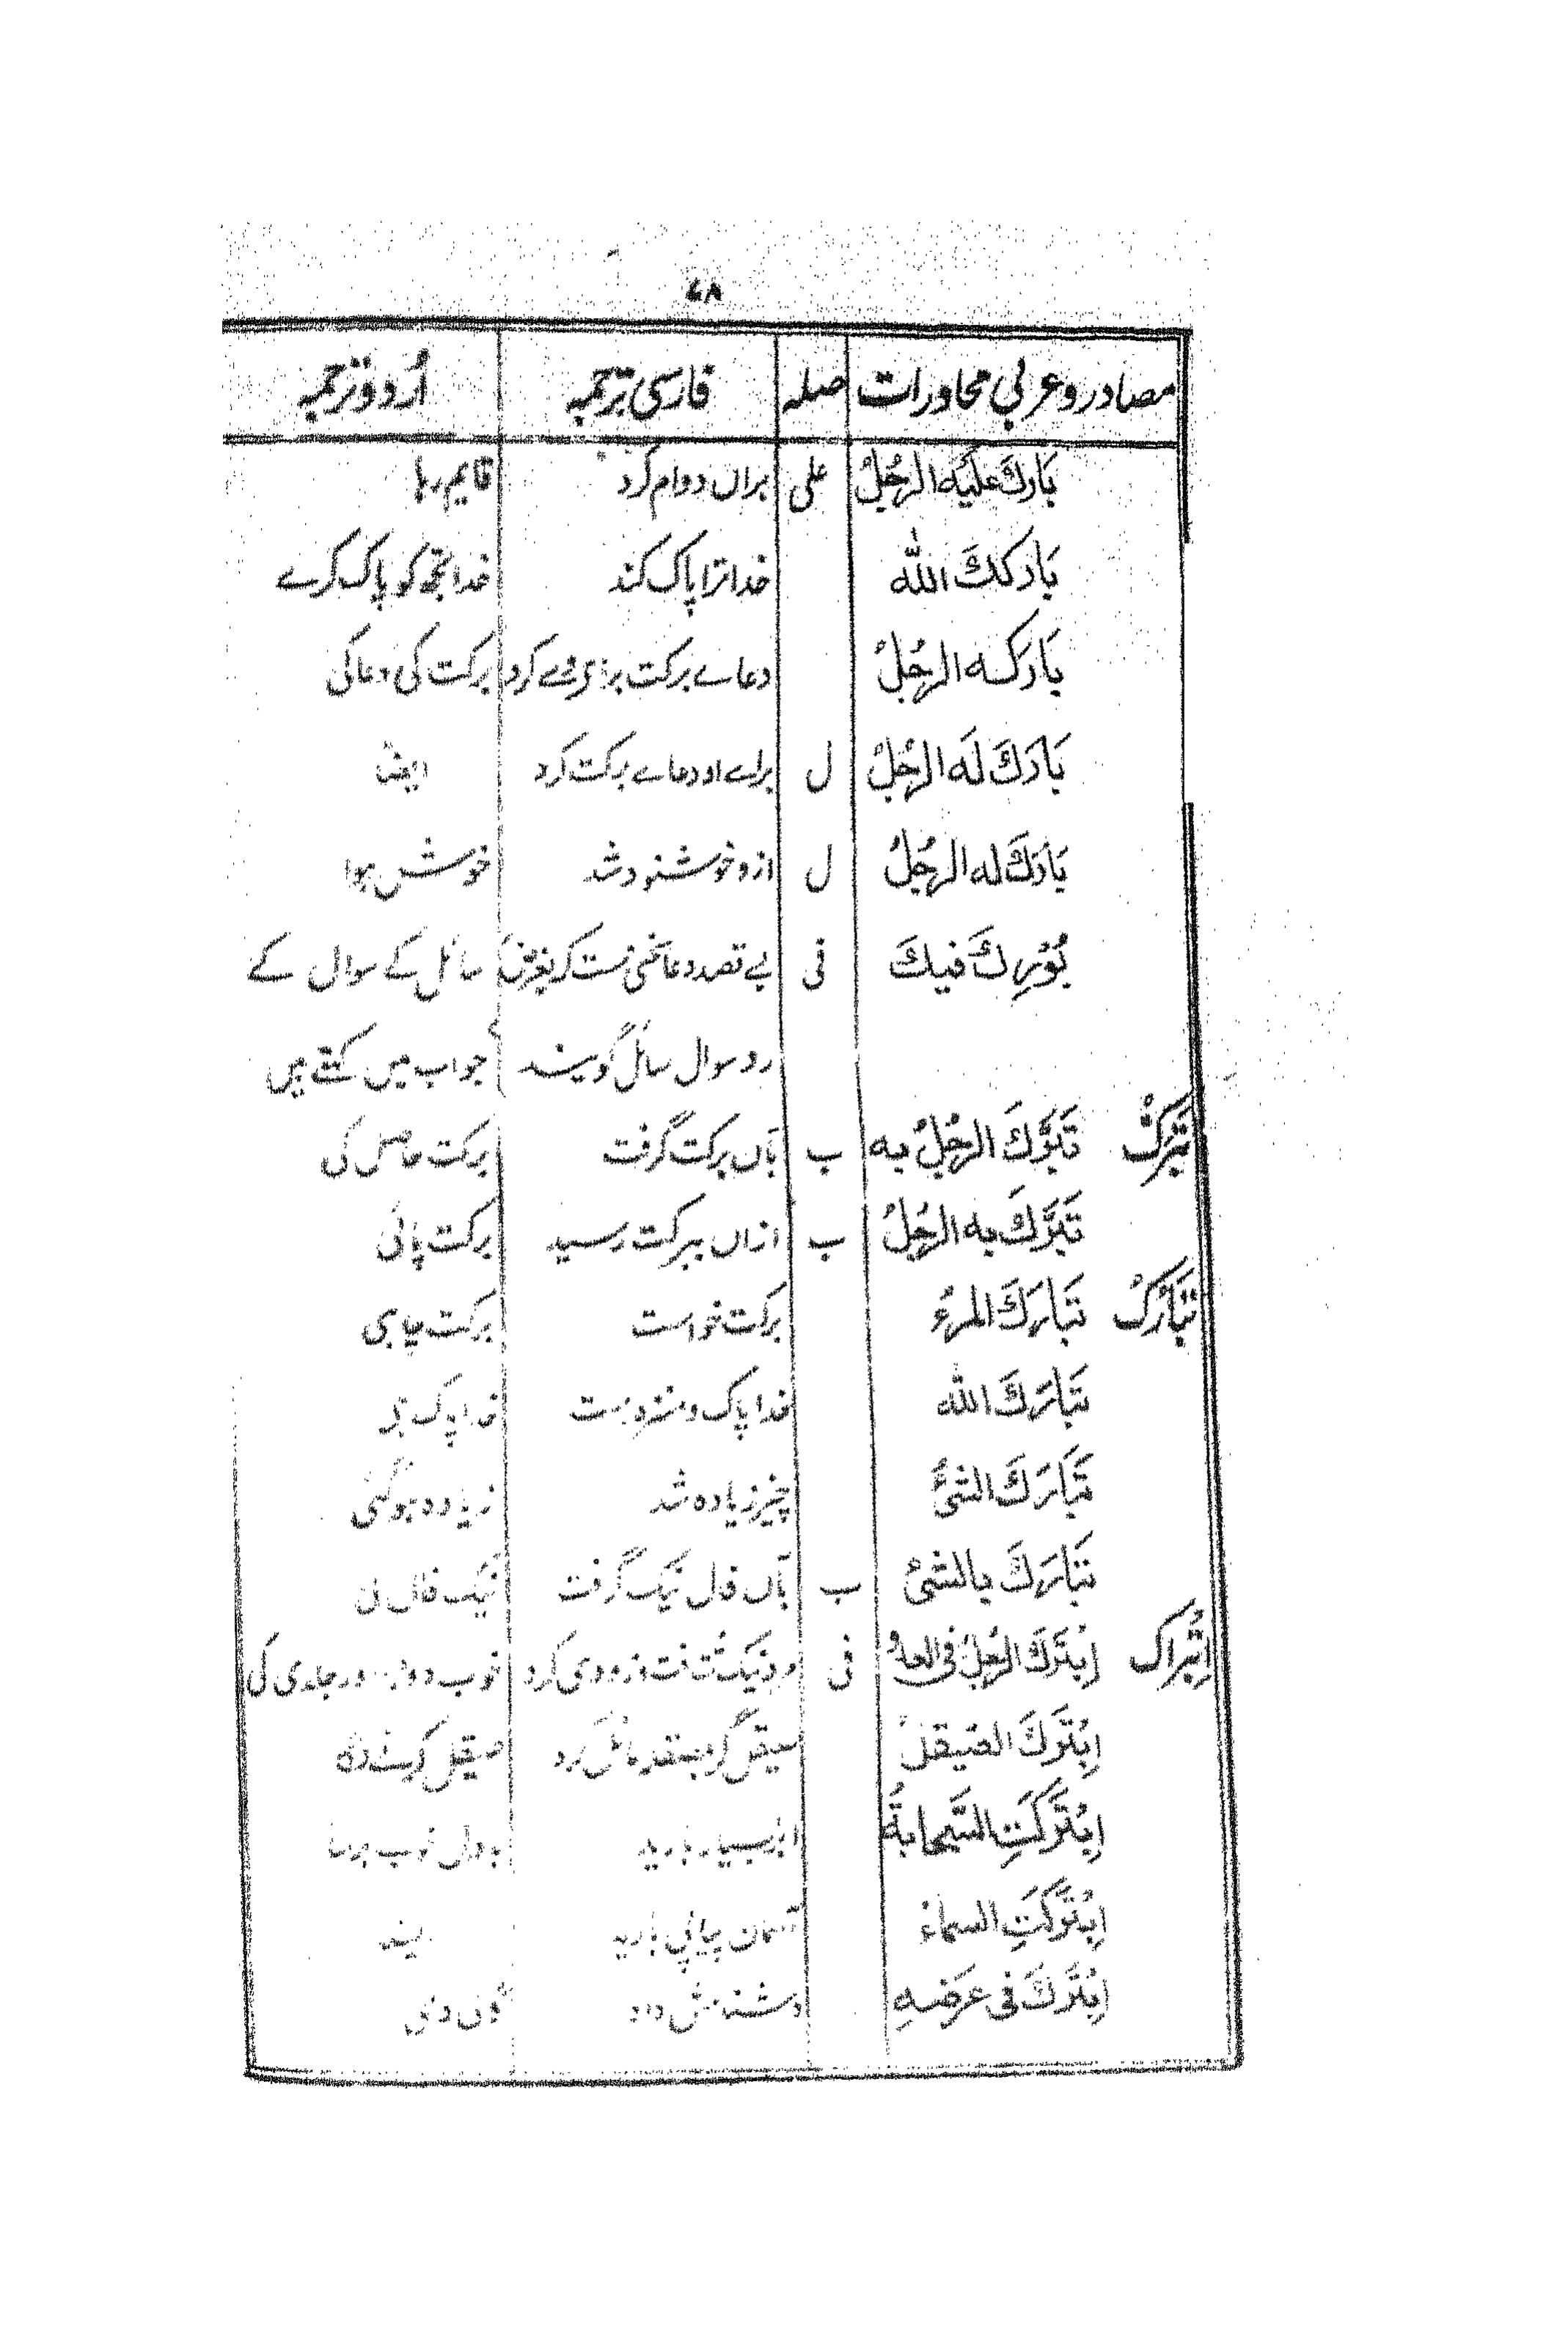 ۷۸
مصادر و عربی محاورات صلہ فارسی ترجمہ اُردو ترجمہ
بَارَكَ عَلَيْهِ الرَّجُلُ علی براں دوام کرد قایم رہا
بَارَكَكَ اللّٰه خدا ترا پاک کند خدا تجھ کو پاک کرے
بَارَكَه الرجُلُ دعاے برکت کرد برکت کی دعا کی
بَارَكَ لَه الرجُلُ ل براے او دعاے برکت کرد ایضًا
بَارَكَ له الرجُلُ ل ازو خوشنود شد خوش ہوا
بُوْرِكَ فيكَ فی بے قصد دعا سائل کے سوال کے
رد سوال سائل گویند جواب میں کہتے ہیں
تَبَرُّكْ تَبَرَّكَ الرجُلُ به ب بآں برکت گرفت برکت حاصل کی
تَبَرَّكَ به الرجُلُ ب ازاں ببرکت رسید برکت پائی
تَبَارُكْ تَبَارَكَ المرءُ برکت خواست برکت چاہی
تَبَارَكَ اللّٰه خدا پاک و منزہ است خدا پاک ہے
تَبَارَكَ الشئُ چیز زیادہ شد زیادہ ہوگئی
تَبَارَكَ بالشئ ب بآں فال نیک گرفت نیک فال لی
اِبْتِرَاک اِبْتَرَكَ الرجُلُ فی العدو فی زودی کرد خوب جلدی کی
اِبْتَرَكَ الصيقلُ صیقل گر صیقل
اِبْتَرَكَتِ السَّحابةُ ابر بسیار بارید بادل خوب برسا
اِبْتَرَكَتِ السماءُ آسمان پیاپے بارید
اِبْتَرَكَ فی عرضہِ دشنامش داد